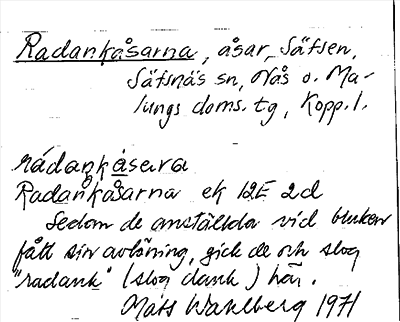 Radankåsarna, åsar, Säfsen,
Säfsnäs sn, Nås o. Ma-
lungs doms. tg, Kopp. l.
rádaŋkåsaṛa
Radankåsarna ek 12E 2d
Sedan de anställda vid bruken
fått sin avlöning, gick de och slog
"radank" (slog dank) här.
Mats Wahlberg 1971